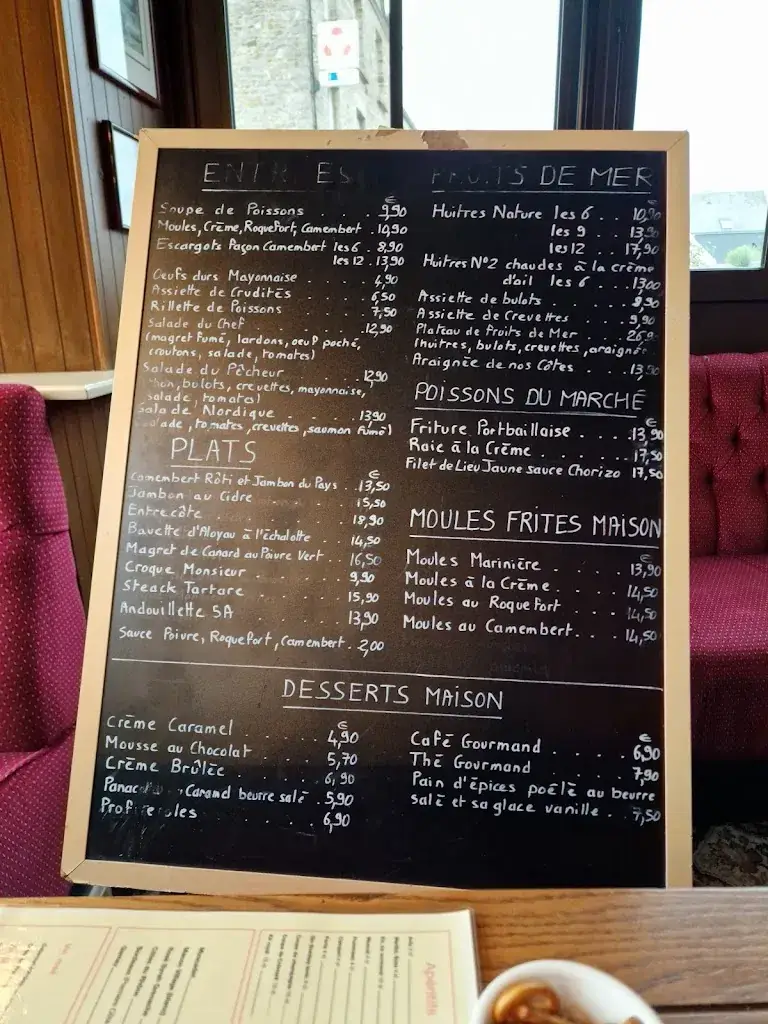 ENTRÉES
€
Soupe de Poissons . . . 9,90
Moules, Crème, Roquefort, Camembert . 10,90
Escargots Façon Camembert les 6 . 8,90
les 12 . 13,90
Oeufs durs Mayonnaise . . . 4,90
Assiette de Crudités . . . 6,50
Rillette de Poissons . . . 7,50
Salade du Chef . . . 12,90
(magret fumé, lardons, oeuf poché,
croutons, salade, tomates)
Salade du Pêcheur . . . 12,90
thon, bulots, crevettes, mayonnaise,
salade, tomate)
Salade Nordique . . . 13,90
salade, tomates, crevettes, saumon fumé)
PLATS
€
Camembert Rôti et Jambon du Pays . 13,50
Jambon au Cidre . . . 15,50
Entrecôte . . . 18,90
Bavette d'Aloyau à l'échalotte . . 14,50
Magret de Canard au Poivre Vert . . 16,50
Croque Monsieur . . . 9,90
Steack Tartare . . . 15,90
Andouillette 5A . . . 13,90
Sauce Poivre, Roquefort, Camembert . 2,00
FRUITS DE MER
€
Huitres Nature les 6 . . 10,90
les 9 . . 13,90
les 12 . . 17,90
Huitres N°2 chaudes à la crème
d'ail les 6 . 13,00
Assiette de bulots . . . 9,90
Assiette de Crevettes . . . 9,90
Plateau de fruits de Mer . . . 26,90
(huitres, bulots, crevettes, araignée
Araignée de nos Côtes . . . 13,50
POISSONS DU MARCHÉ
€
Friture Portbaillaise . . . . 13,90
Raie à la Crème . . . 17,50
Filet de Lieu Jaune sauce Chorizo 17,50
MOULES FRITES MAISON
€
Moules Marinière . . . 13,90
Moules à la Crème . . . 14,50
Moules au Roquefort . . . 14,50
Moules au Camembert . . . 14,50
DESSERTS MAISON
€
Crème Caramel . . . 4,90
Mousse au Chocolat . . . 5,70
Crème Brûlée . . . 6,90
Caramel beurre salé . 5,90
Profiteroles . . . 6,90
€
Café Gourmand . . . 6,90
Thé Gourmand . . . 7,90
Pain d'épices poêlé au beurre
salé et sa glace vanille . . 7,50
Apéritifs